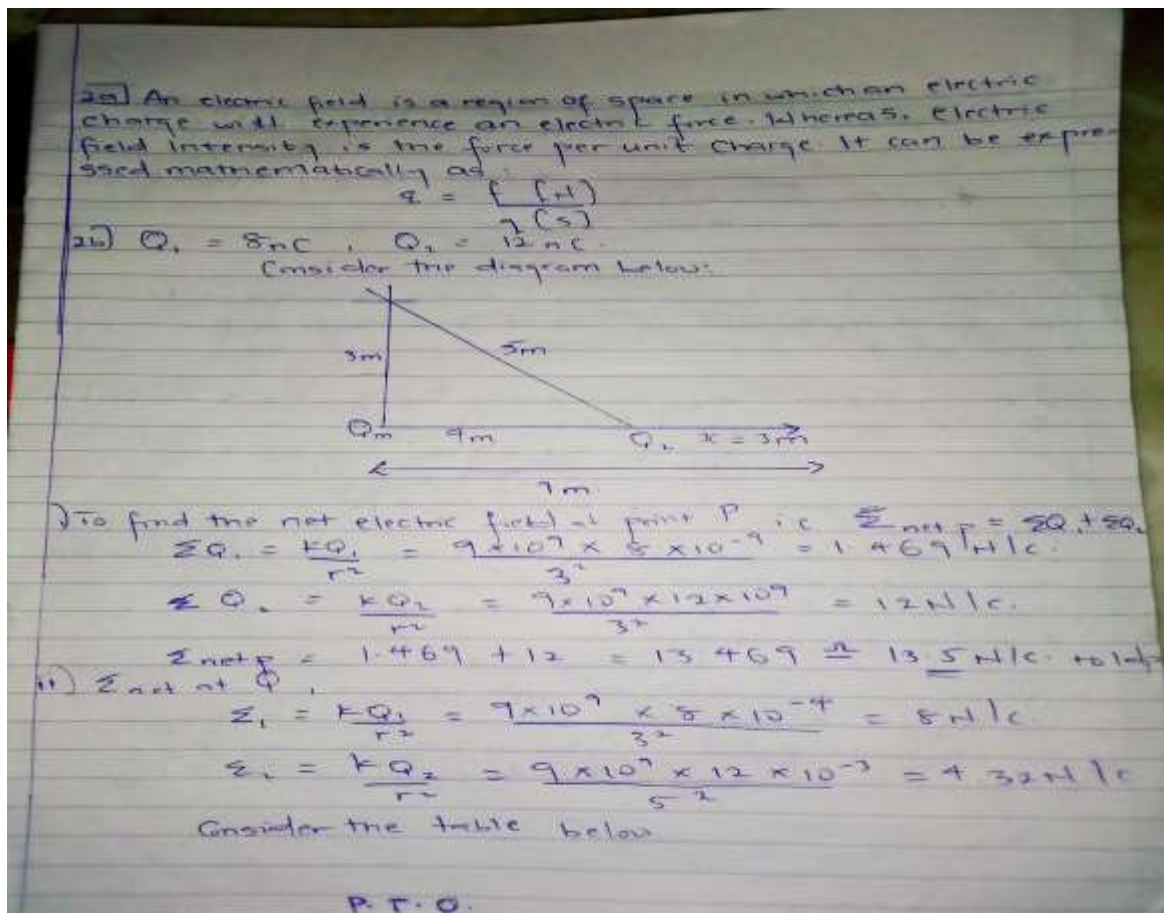 2a) An electric field is a region of space in which an electric
charge will experience an electric force. Whereas, electric
field intensity is the force per unit charge. It can be expre-
ssed mathematically as
ε = F (N)
q (s)
2b) Q₁ = 8nC, Q₂ = 12nC.
Consider the diagram below:
3m
5m
4m
Q₂ x = 3m
7m
) To find the net electric field at point P i.e Σ net p = ΣQ₁ + ΣQ₂
ΣQ₁ = kQ₁/r² = 9×10⁹ × 8 ×10⁻⁹/3² = 1.469 N/c.
Q₂ = kQ₂/r² = 9×10⁹×12×10⁹/3² = 12N/c.
Σ net p = 1.469 + 12 = 13.469 ≏ 13.5N/c. to 1dp
ii) Σ net at Q,
Σ₁ = kQ₁/r² = 9×10⁹ × 8 × 10⁻⁹/3² = 8N/c.
Σ₂ = kQ₂/r² = 9×10⁹ × 12 × 10⁻⁹/5² = 4.32N/c
Consider the table below
P.T.O.